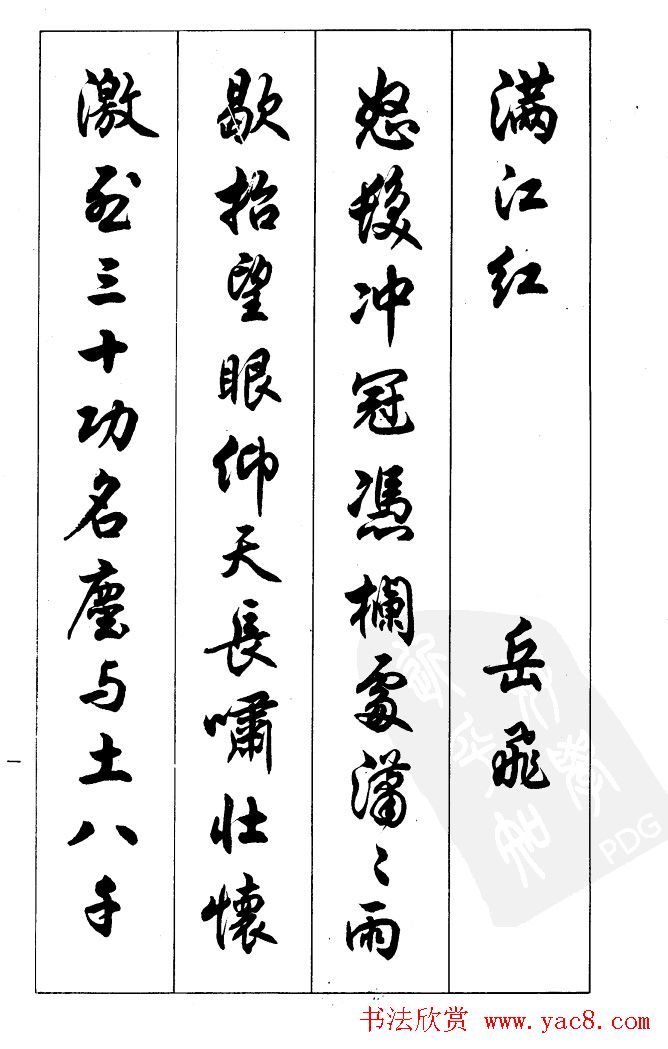 满江红 岳飛
怒髮冲冠憑欄處瀟〻雨
歇抬望眼仰天長嘯壮懷
激烈三十功名塵与土八千
一
PDG
书法欣赏 www.yac8.com